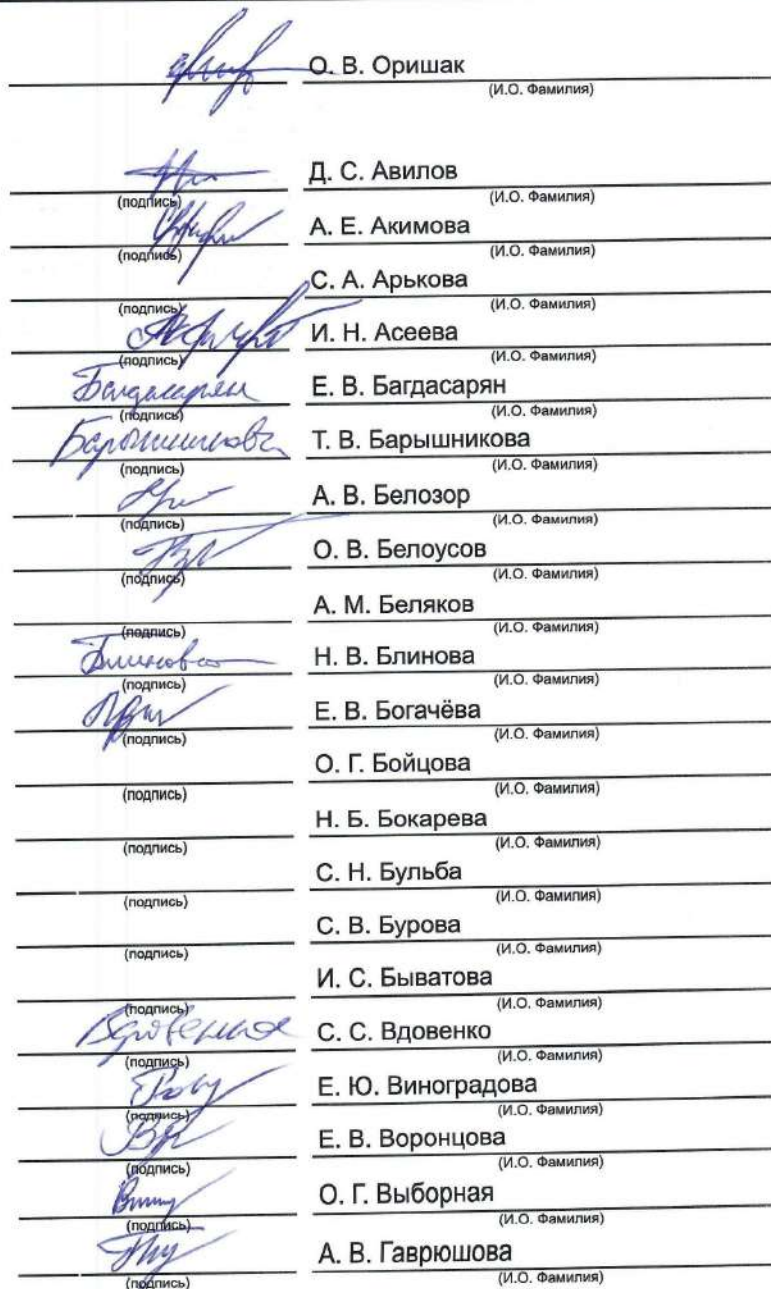 О. В. Оришак
(И.О. Фамилия)
Д. С. Авилов
(подпись) (И.О. Фамилия)
А. Е. Акимова
(подпись) (И.О. Фамилия)
С. А. Арькова
(подпись) (И.О. Фамилия)
И. Н. Асеева
(подпись) (И.О. Фамилия)
Багдасарян Е. В. Багдасарян
(подпись) (И.О. Фамилия)
Барышникова Т. В. Барышникова
(подпись) (И.О. Фамилия)
А. В. Белозор
(подпись) (И.О. Фамилия)
О. В. Белоусов
(подпись) (И.О. Фамилия)
А. М. Беляков
(подпись) (И.О. Фамилия)
Блинова Н. В. Блинова
(подпись) (И.О. Фамилия)
Е. В. Богачёва
(подпись) (И.О. Фамилия)
О. Г. Бойцова
(подпись) (И.О. Фамилия)
Н. Б. Бокарева
(подпись) (И.О. Фамилия)
С. Н. Бульба
(подпись) (И.О. Фамилия)
С. В. Бурова
(подпись) (И.О. Фамилия)
И. С. Быватова
(подпись) (И.О. Фамилия)
Вдовенко С. С. Вдовенко
(подпись) (И.О. Фамилия)
Е. Ю. Виноградова
(подпись) (И.О. Фамилия)
Е. В. Воронцова
(подпись) (И.О. Фамилия)
О. Г. Выборная
(подпись) (И.О. Фамилия)
А. В. Гаврюшова
(подпись) (И.О. Фамилия)